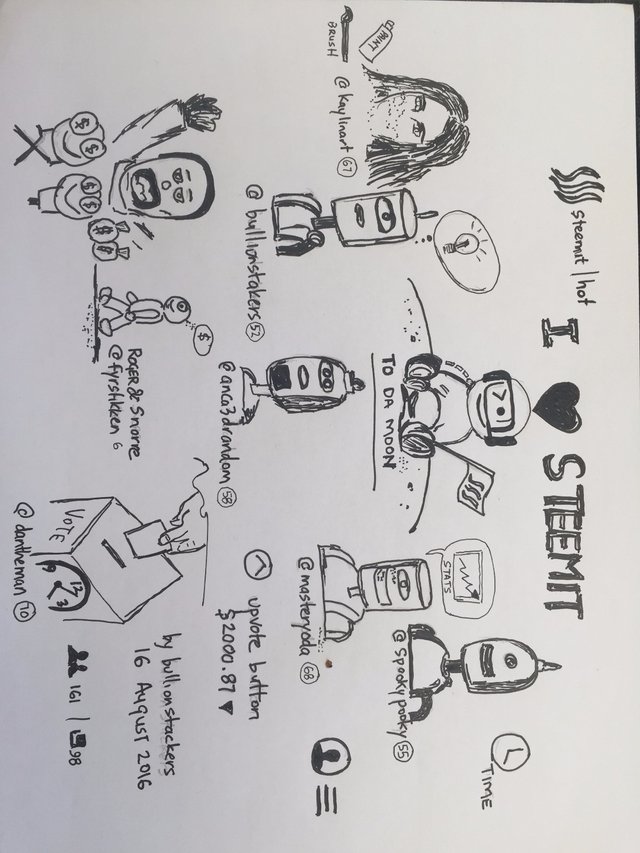 steemit/hot
I ♥ STEEMIT
TIME
PAINT
BRUSH
@kaylinart 67
@bullionstakers 52
TO DA MOON
@anca3drandom 58
STATS
@masteryoda 68
@spookypooky 55
$
$
$
$
$
$
$
ROGER & Snorre
@fyrstikken 6
VOTE
12
9 3
@dantheman 70
upvote button
$2000.87 ▼
by bullionstackers
16 August 2016
161 | 98